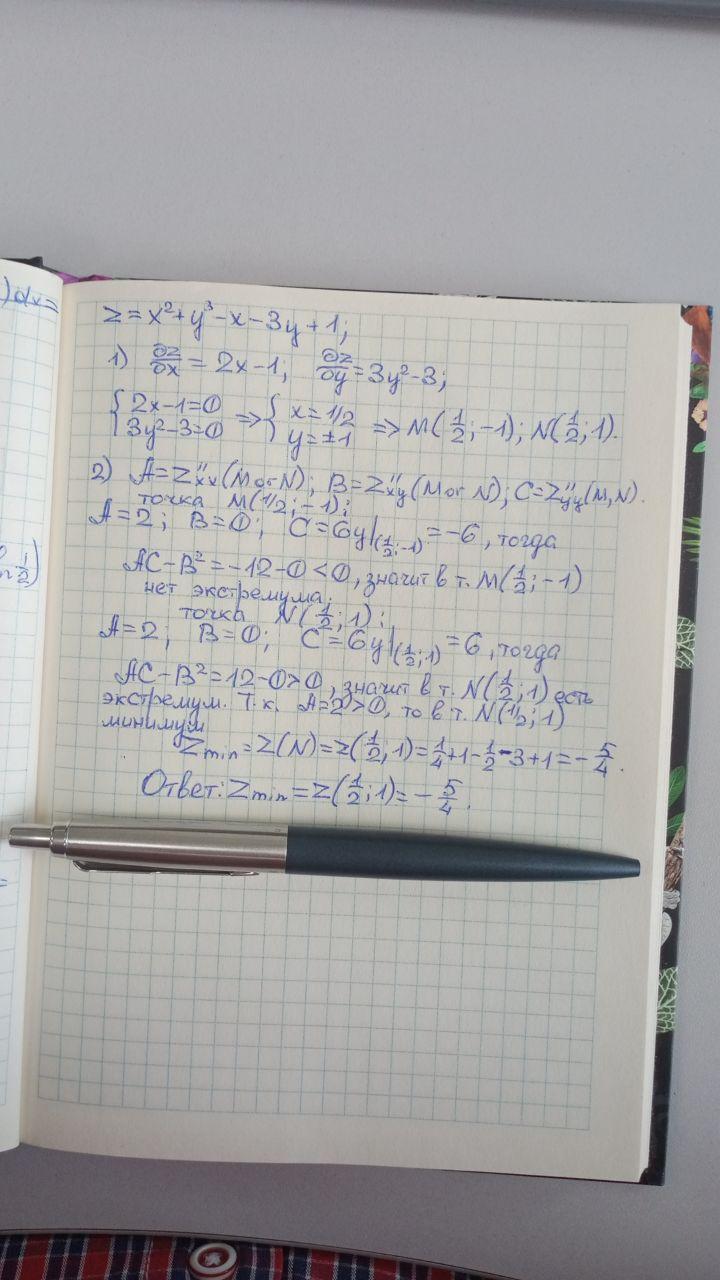 )dx=
z = x² + y³ - x - 3y + 1;
1) ∂z/∂x = 2x - 1; ∂z/∂y = 3y² - 3;
{ 2x - 1 = 0 ⇒ { x = 1/2
{ 3y² - 3 = 0 { y = ±1 ⇒ M(1/2; -1); N(1/2; 1).
2) A = z''xx (M or N); B = z''xy (M or N); C = z''yy (M, N).
точка M(1/2; -1);
A = 2; B = 0; C = 6y|(1/2; -1) = -6, тогда
AC - B² = -12 - 0 < 0, значит в т. M(1/2; -1)
нет экстремума.
точка N(1/2; 1);
A = 2; B = 0; C = 6y|(1/2; 1) = 6, тогда
AC - B² = 12 - 0 > 0, значит в т. N(1/2; 1) есть
экстремум. Т.к. A = 2 > 0, то в т. N(1/2; 1)
минимум
Zmin = Z(N) = z(1/2, 1) = 1/4 + 1 - 1/2 - 3 + 1 = -5/4.
Ответ: Zmin = Z(1/2; 1) = -5/4.